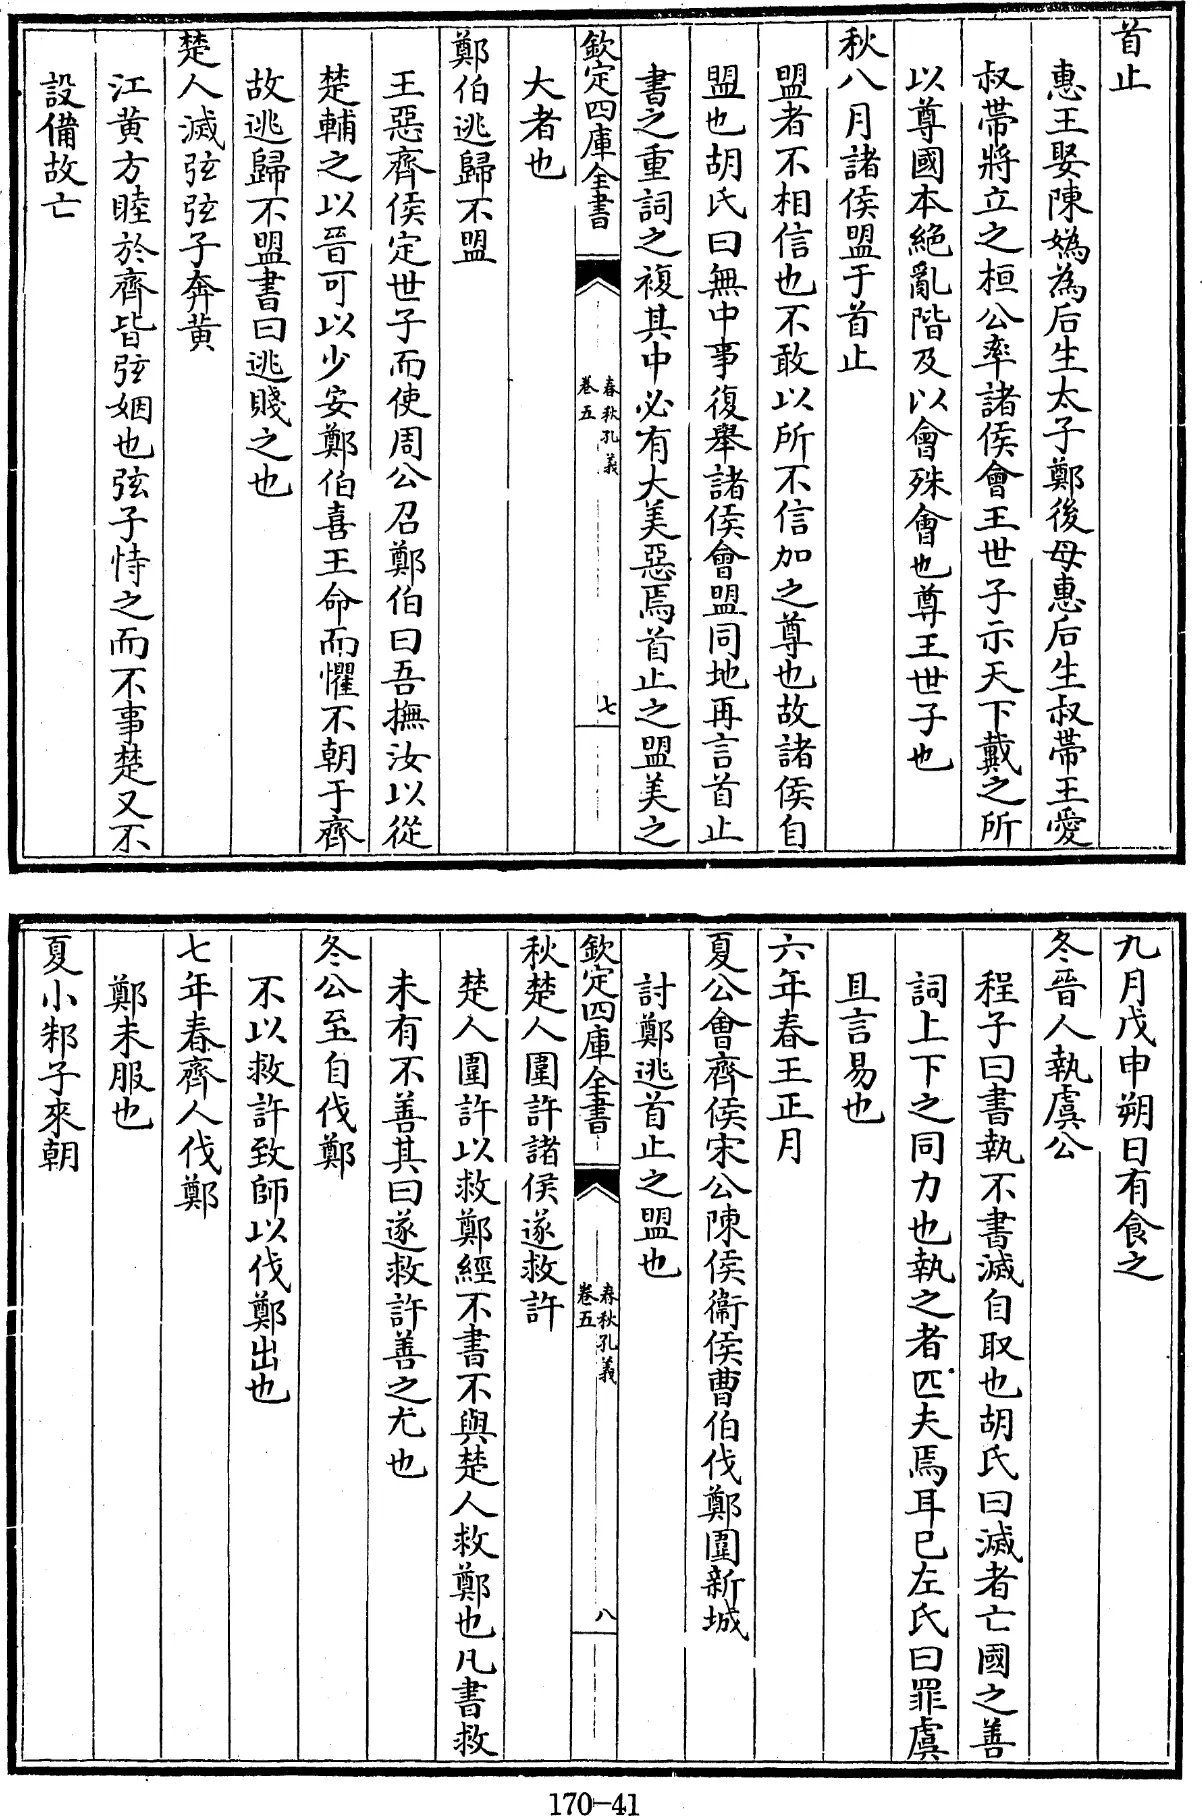 首止
惠王娶陳媯為后生太子鄭後母惠后生叔帶王愛
叔帶將立之桓公率諸侯會王世子示天下戴之所
以尊國本絶亂階及以會殊會也尊王世子也
秋八月諸侯盟于首止
盟者不相信也不敢以所不信加之尊也故諸侯自
盟也胡氏曰無中事復舉諸侯會盟同地再言首止
書之重詞之複其中必有大美惡焉首止之盟美之
欽定四庫全書
春秋孔義
卷五
七
大者也
鄭伯逃歸不盟
王惡齊侯定世子而使周公召鄭伯曰吾撫汝以從
楚輔之以晉可以少安鄭伯喜王命而懼不朝于齊
故逃歸不盟書曰逃賤之也
楚人滅弦弦子奔黄
江黄方睦於齊皆弦姻也弦子恃之而不事楚又不
設備故亡
九月戊申朔日有食之
冬晉人執虞公
程子曰書執不書滅自取也胡氏曰滅者亡國之善
詞上下之同力也執之者匹夫焉耳已左氏曰罪虞
且言易也
六年春王正月
夏公會齊侯宋公陳侯衛侯曹伯伐鄭圍新城
討鄭逃首止之盟也
欽定四庫全書
春秋孔義
卷五
八
秋楚人圍許諸侯遂救許
楚人圍許以救鄭經不書不與楚人救鄭也凡書救
未有不善其曰遂救許善之尤也
冬公至自伐鄭
不以救許致師以伐鄭出也
七年春齊人伐鄭
鄭未服也
夏小邾子來朝
170-41